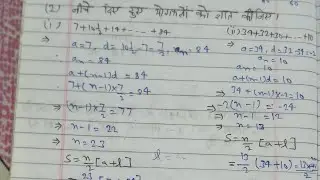 (2) नीचे दिए हुए योगफलों को ज्ञात कीजिए।
(i) 7+10½+14+ --- +84
a=7, d= 10½-7=7/2, an=84
an=84
a+(n-1)d = 84
7+(n-1)×7/2=84
⇒ (n-1)×7/2=77
⇒ n-1=22
⇒ n=23
S=n/2[a+l]
(ii) 34+32+30+ --- +10
a=34, d=32-34=-2
an=10
a+(n-1)d=10
34+(n-1)×-2=10
⇒ -2(n-1)=-24
⇒ n-1=12
⇒ n=13
S=n/2[a+l]
=13/2(34+10)